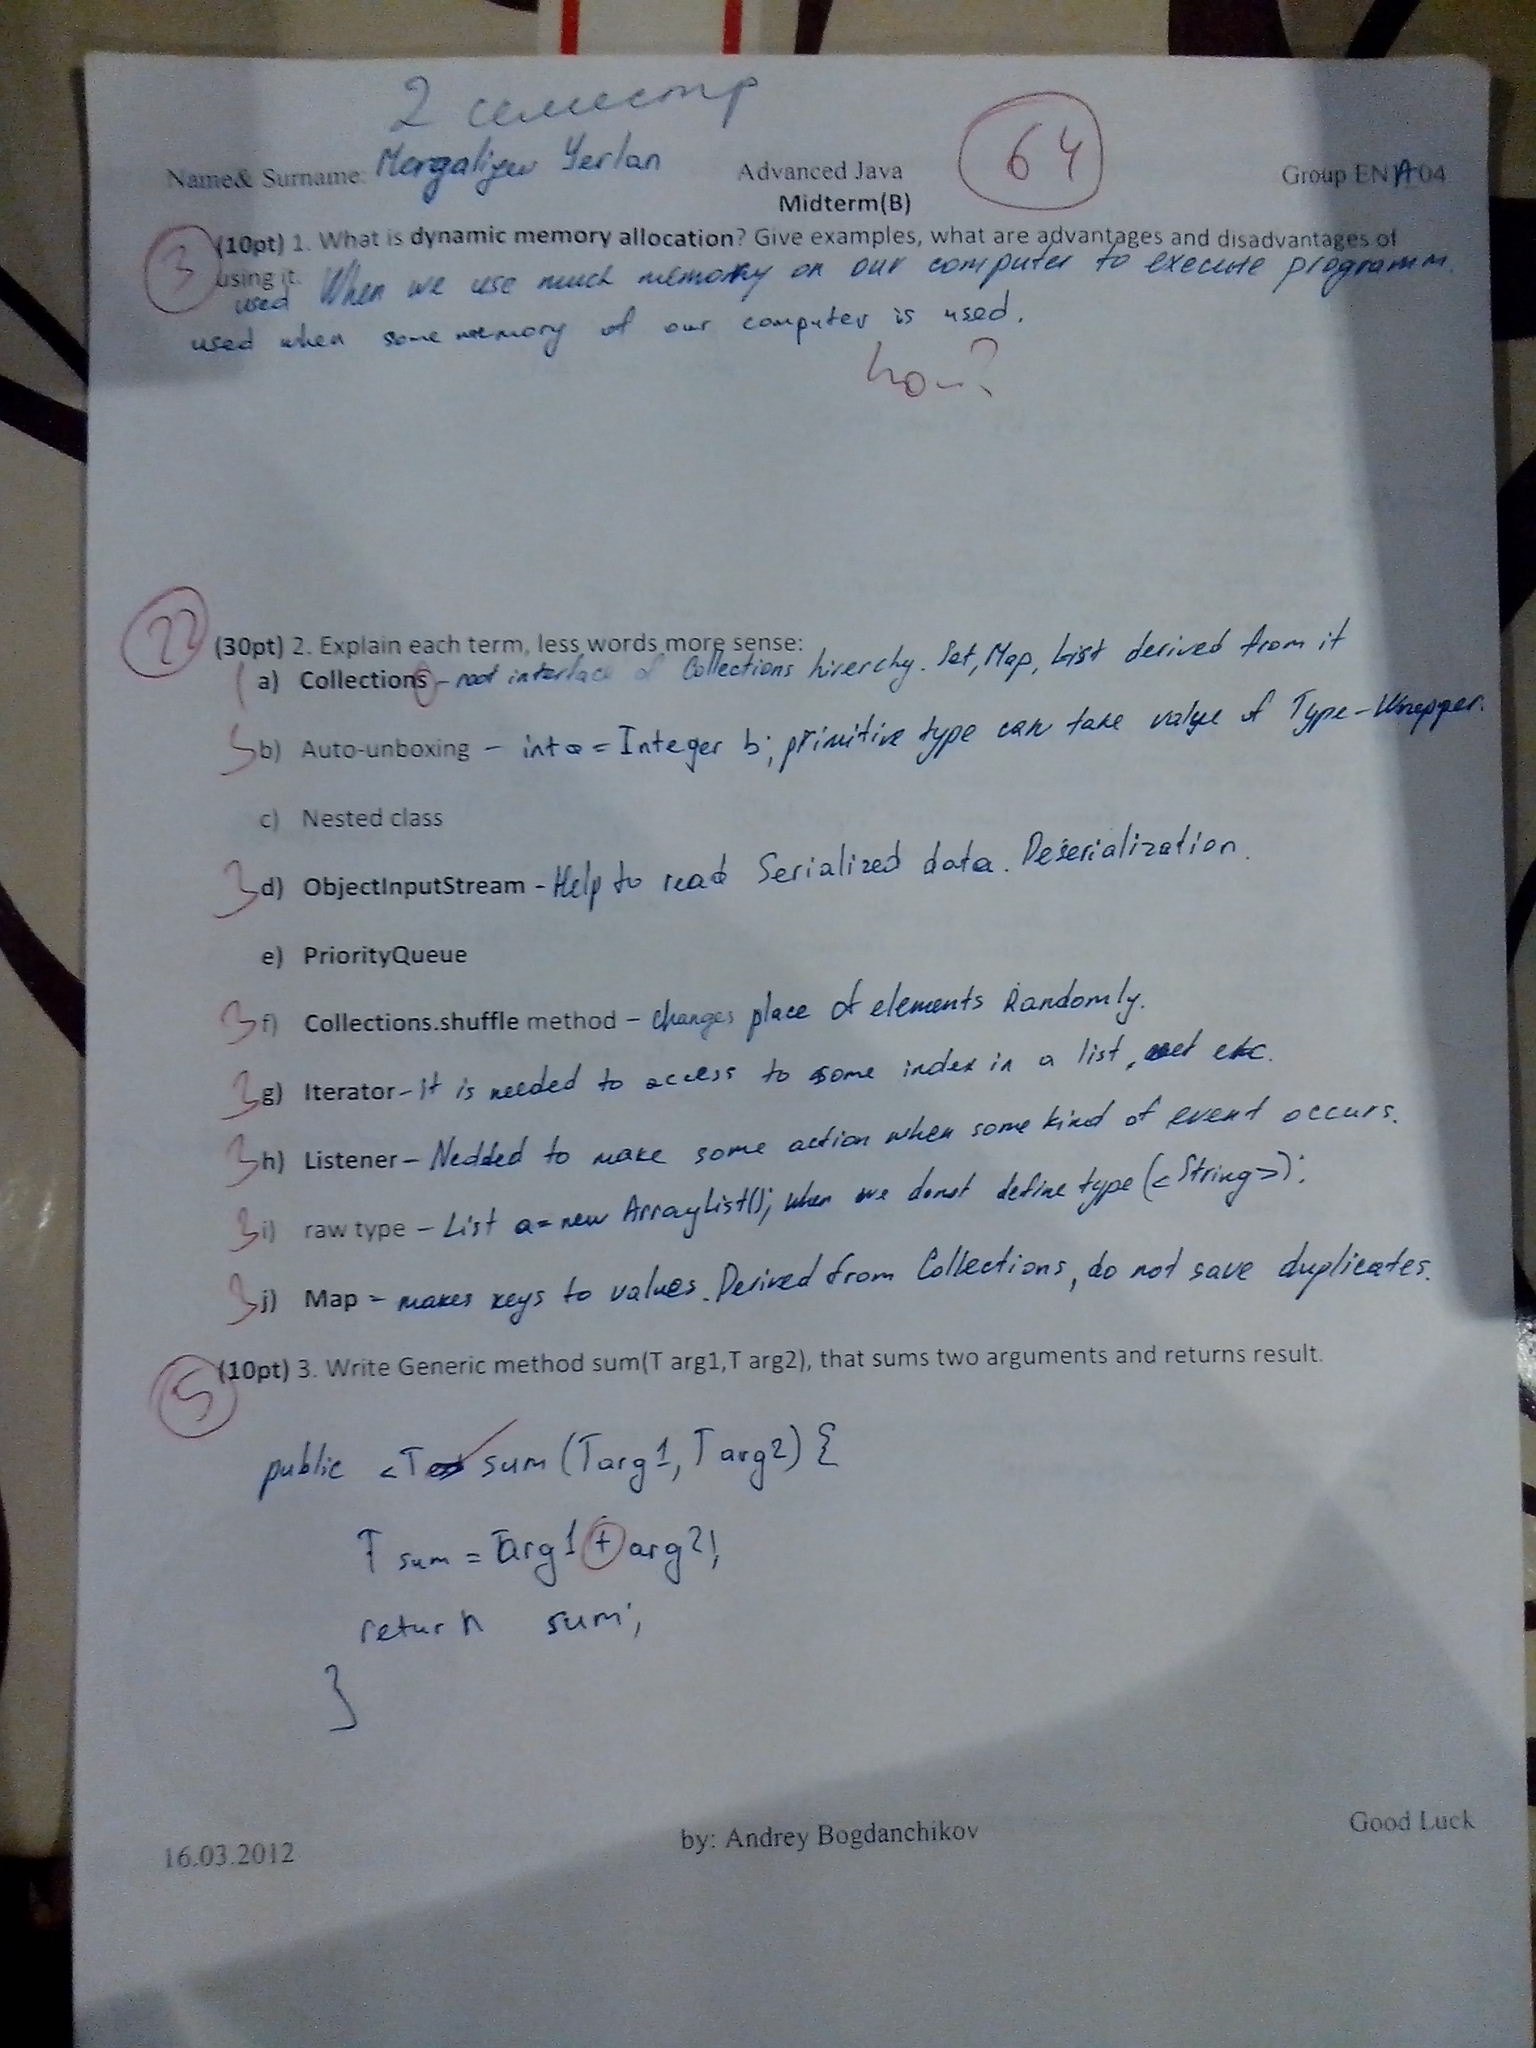 2 семестр
Name& Surname: Mergaliyev Yerlan Advanced Java 64 Group EN1A04
Midterm(B)
3 (10pt) 1. What is dynamic memory allocation? Give examples, what are advantages and disadvantages of
using it. When we use much memory on our computer to execute programm.
used
used when some memory of our computer is used.
how?
22 (30pt) 2. Explain each term, less words more sense:
1 a) Collections - root interface of Collections hirerchy. Set, Map, List derived from it
3 b) Auto-unboxing - int a = Integer b; primitive type can take value of Type-Wrapper.
c) Nested class
3 d) ObjectInputStream - Help to read Serialized data. Deserialization.
e) PriorityQueue
3 f) Collections.shuffle method - changes place of elements Randomly.
3 g) Iterator - it is needed to access to some index in a list, set etc.
3 h) Listener - Nedded to make some action when some kind of event occurs.
3 i) raw type - List a = new ArrayList(); when we donot define type (<String>);
3 j) Map - makes keys to values. Derived from Collections, do not save duplicates.
5 (10pt) 3. Write Generic method sum(T arg1,T arg2), that sums two arguments and returns result.
public <T> sum (T arg1, T arg2) {
T sum = Targ1 + arg2;
return sum;
}
16.03.2012 by: Andrey Bogdanchikov Good Luck